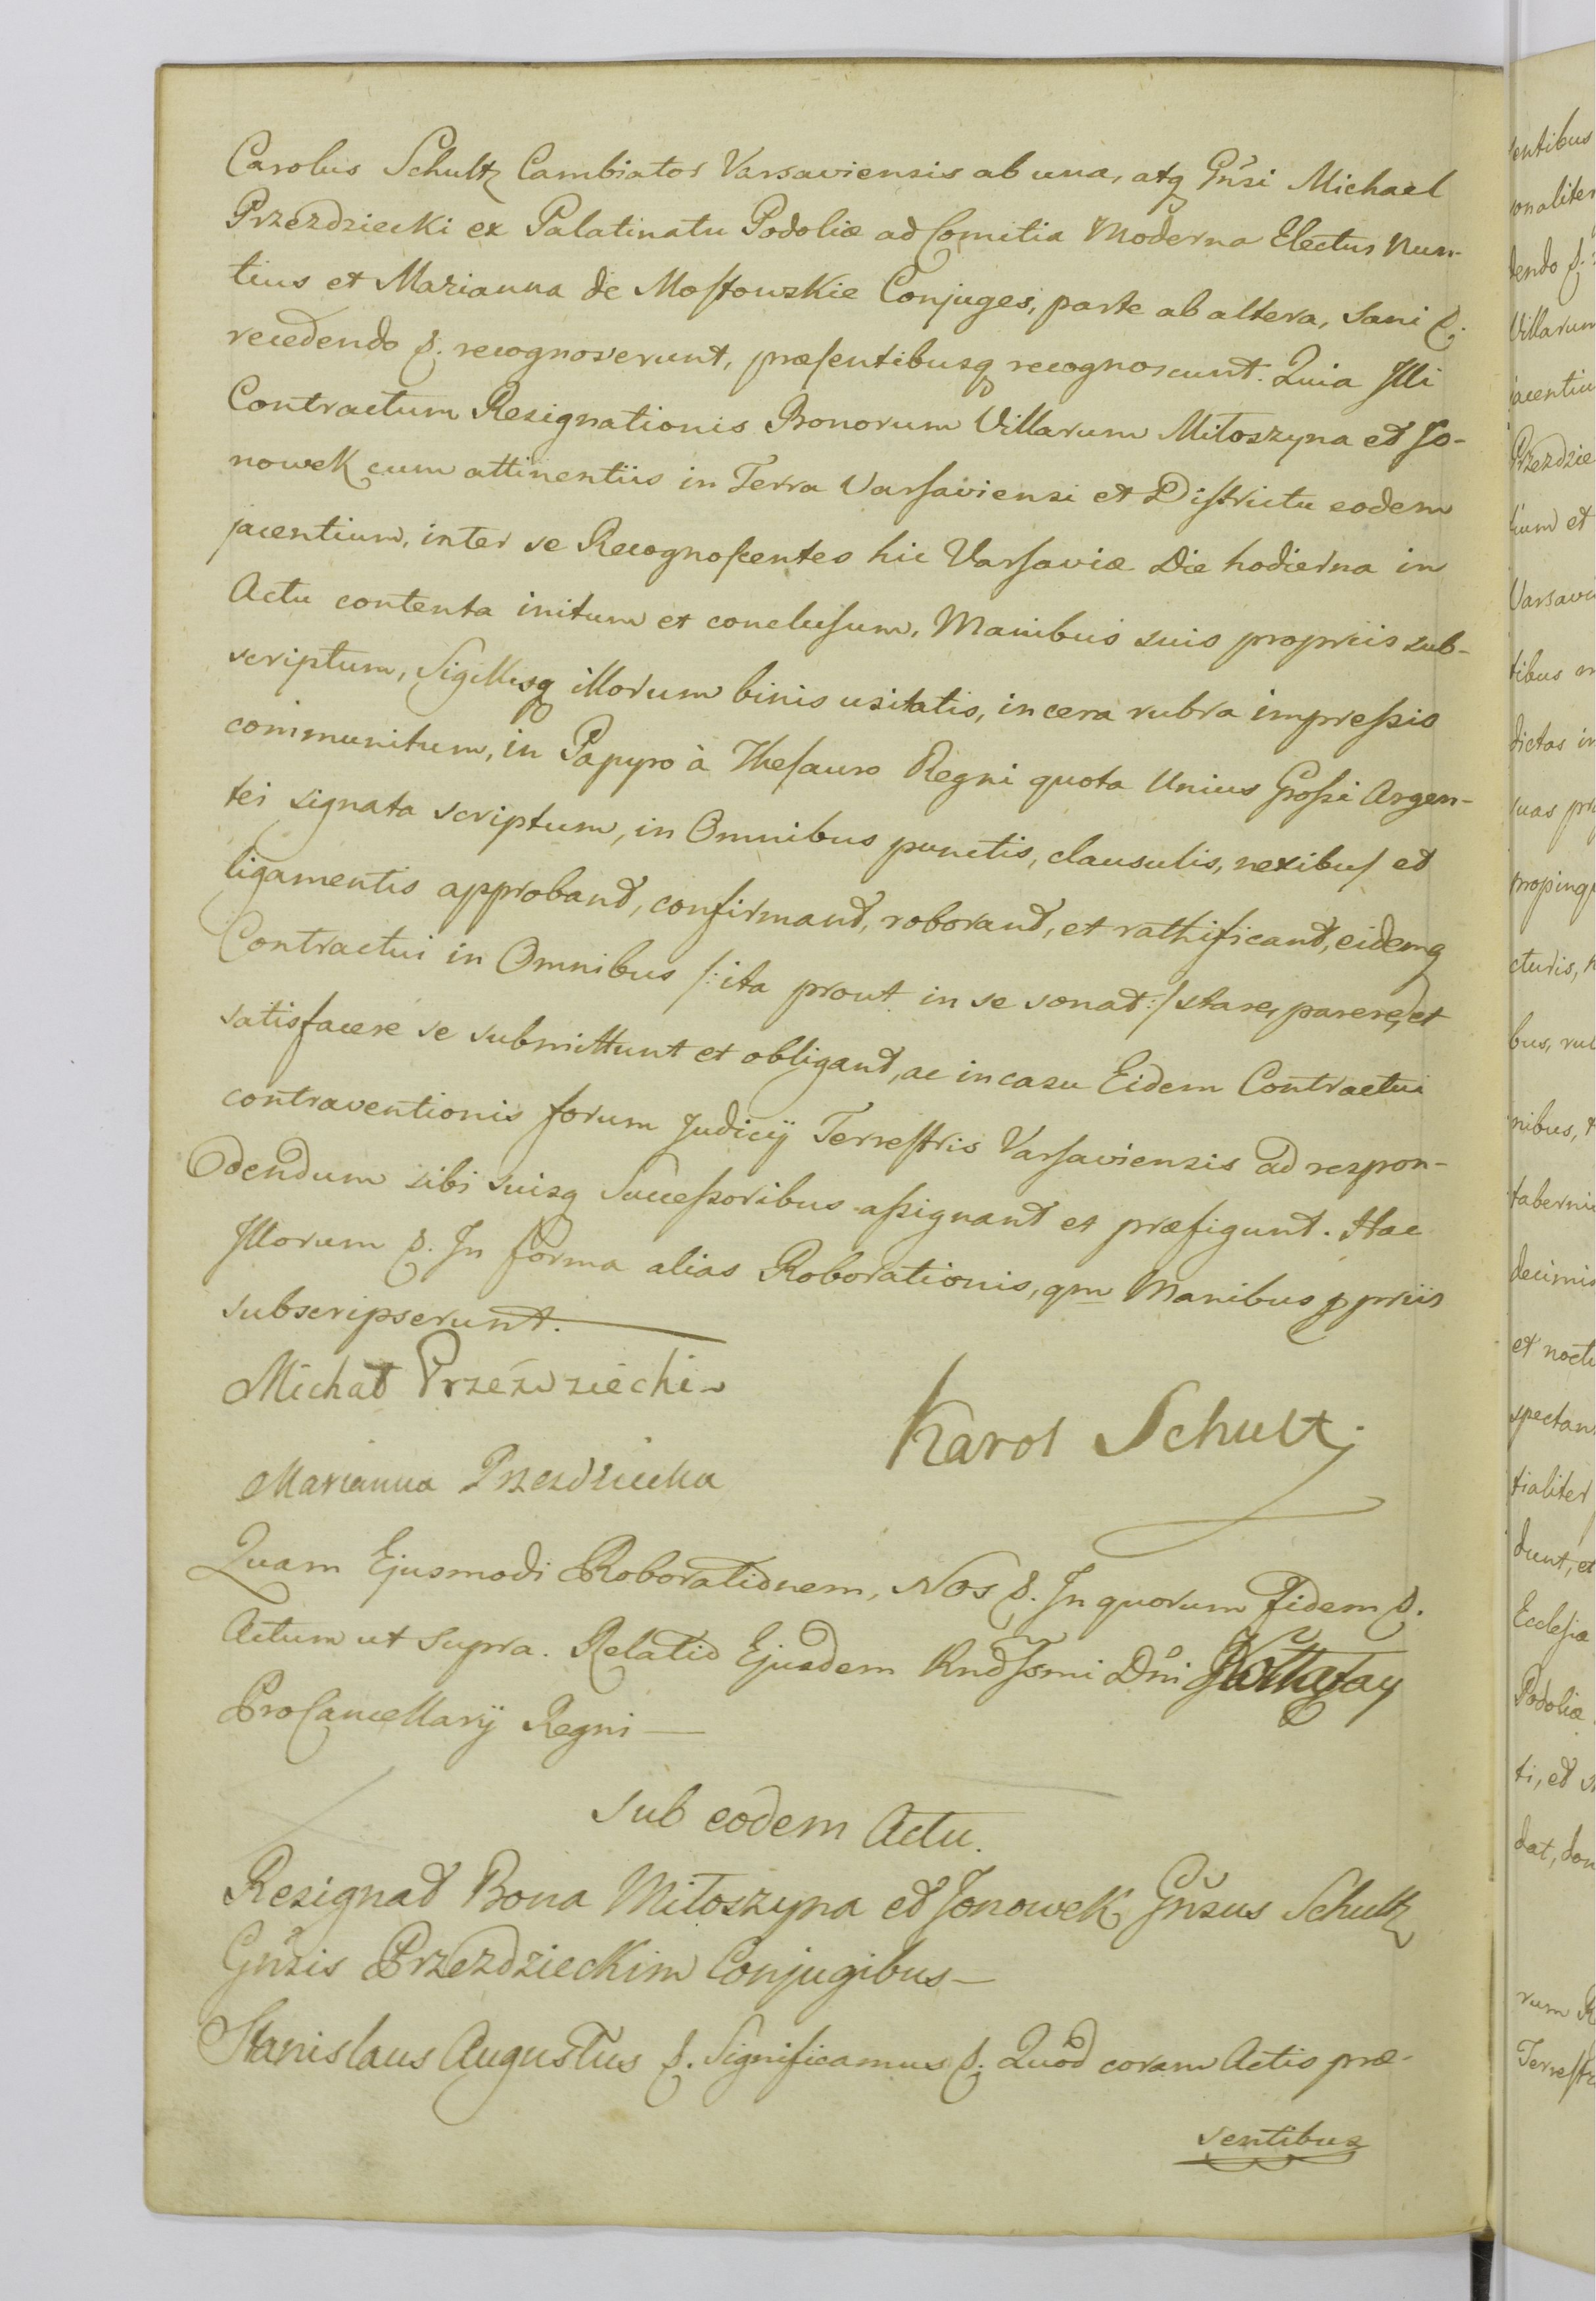 Carolus Schultz Cambiator Varsaviensis ab una, atq Gñsi Michael
Przezdziecki ex Palatinatu Podoliæ ad Comitia Moderna Electus Nun-
tius et Marianna de Moſtowskie Conjuges, parte ab altera, Sani &.
recedendo &. recognoverunt, præſentibusq recognoscunt. Quia Illi
Contractum Resignationis Bonorum Villarum Miłoszyna et Jo-
nowek cum attinentiis in Terra Varſaviensi et Diſtrictu eodem
jacentium, inter se Recognoſcentes hic Varſaviæ Die hodierna in
Actu contenta initum et concluſum, Manibus suis propriis sub-
scriptum, Sigillisq illorum binis usitatis, in cera rubra impreſsis
communitum, in Papyro à Theſauro Regni quota Unius Groſsi Argen-
tei signata scriptum, in Omnibus punctis, clausulis, nexibuſ et
ligamentis approbant, confirmant, roborant, et rathificant, eidemq
Contractui in Omnibus /: ita prout in se sonat :/ stare, parere, et
satisfacere se submittunt et obligant, ac in casu Eidem Contractui
contraventionis forum Judicij Terreſtris Varſaviensis ad respon-
dendum sibi suisq Succeſsoribus aſsignant et præfigunt. Hac
Illorum &. In forma alias Roborationis, qm Manibus ppriis
subscripserunt.
Michał Przeździecki
Karol Schultz
Marianna Przezdziecka
Quam Ejusmodi Roborationem, Nos &. In quorum Fidem &.
Actum ut Supra. Relatio Ejusdem Rndſsmi Dñi Kołłątay
ProCancellarij Regni
Sub eodem Actu.
Resignat Bona Miłoszyna et Jonowek Gñsus Schultz
Gñsis Przezdzieckim Conjugibus
Stanislaus Augustus &. Significamus &. Quod coram Actis præ-
sentibus